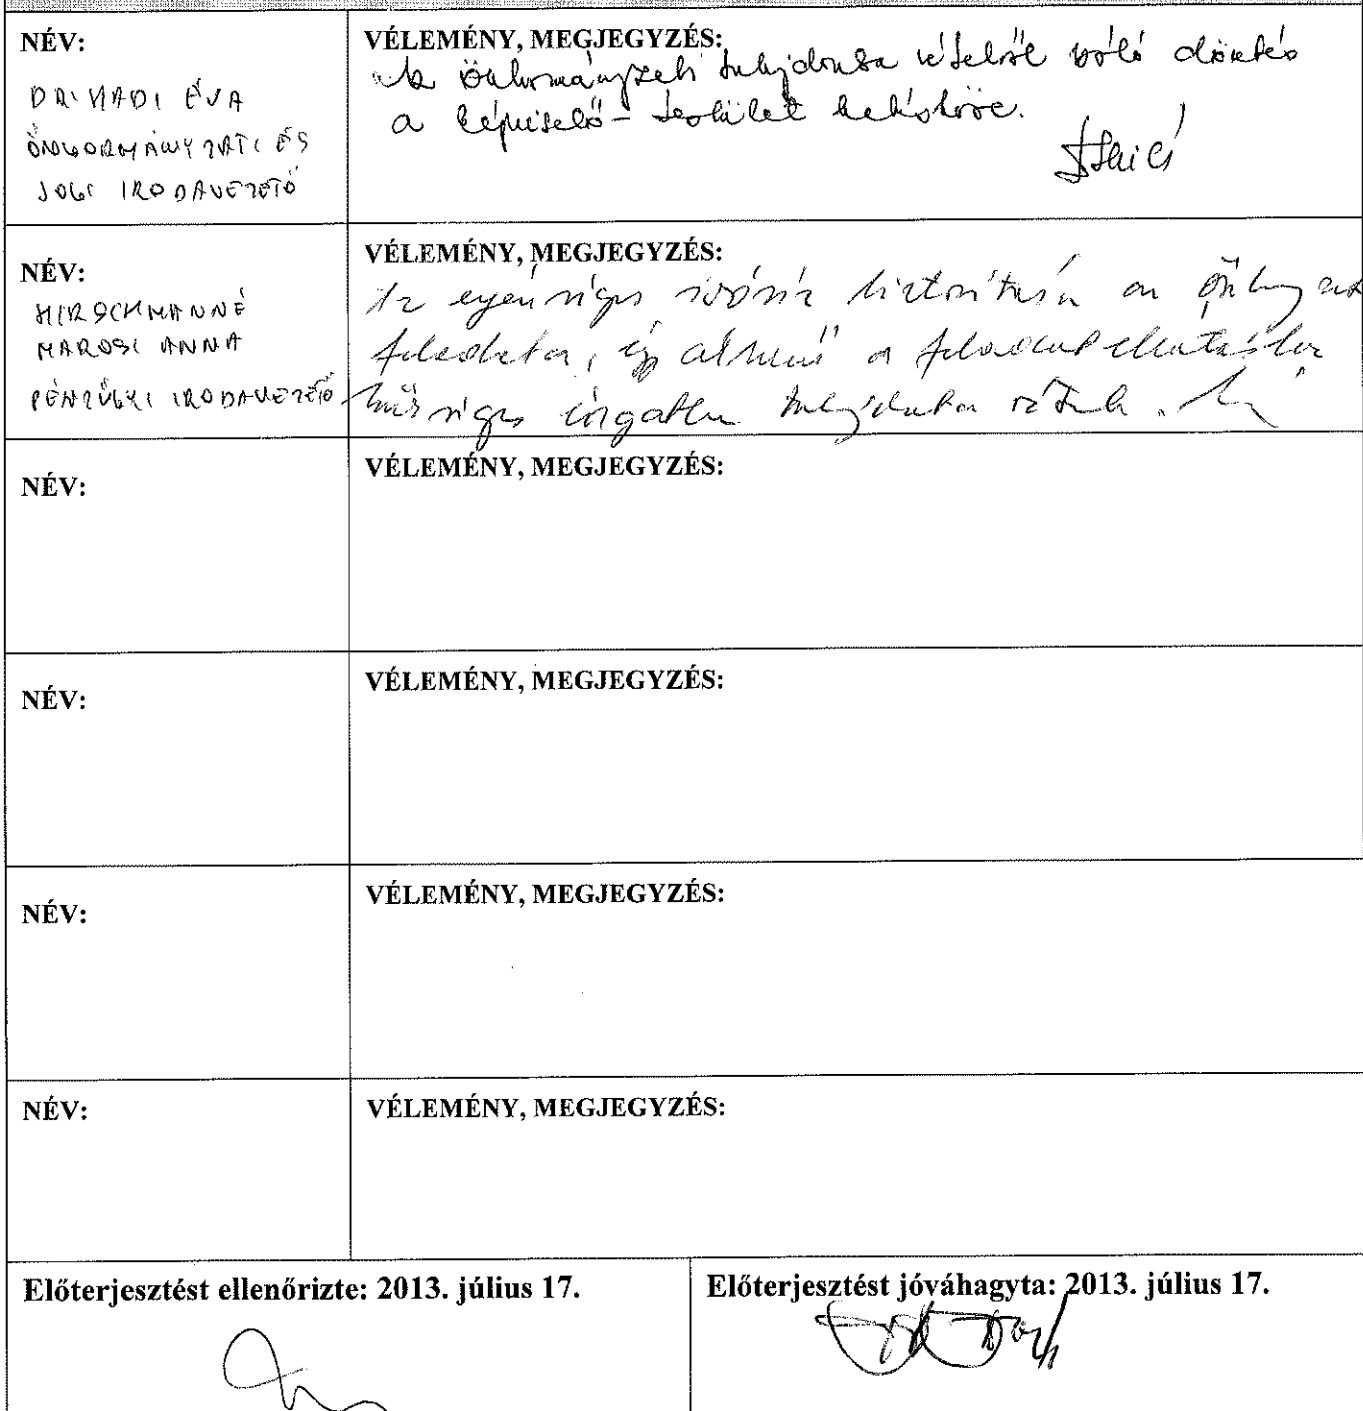 NÉV:
DR. HADI ÉVA
ÖNKORMÁNYZATI ÉS
JOGI IRODAVEZETŐ
VÉLEMÉNY, MEGJEGYZÉS:
Az önkormányzati tulajdonba vételről való döntés
a képviselő-testület hatásköre.
NÉV:
HIRSCHMANNÉ
MAROSI ANNA
PÉNZÜGYI IRODAVEZETŐ
VÉLEMÉNY, MEGJEGYZÉS:
Az egészséges ivóvíz biztosítása az
feladata, így a feladatellátáshoz
szükséges ingatlan tulajdonba
NÉV:
VÉLEMÉNY, MEGJEGYZÉS:
NÉV:
VÉLEMÉNY, MEGJEGYZÉS:
NÉV:
VÉLEMÉNY, MEGJEGYZÉS:
NÉV:
VÉLEMÉNY, MEGJEGYZÉS:
Előterjesztést ellenőrizte: 2013. július 17.
Előterjesztést jóváhagyta: 2013. július 17.